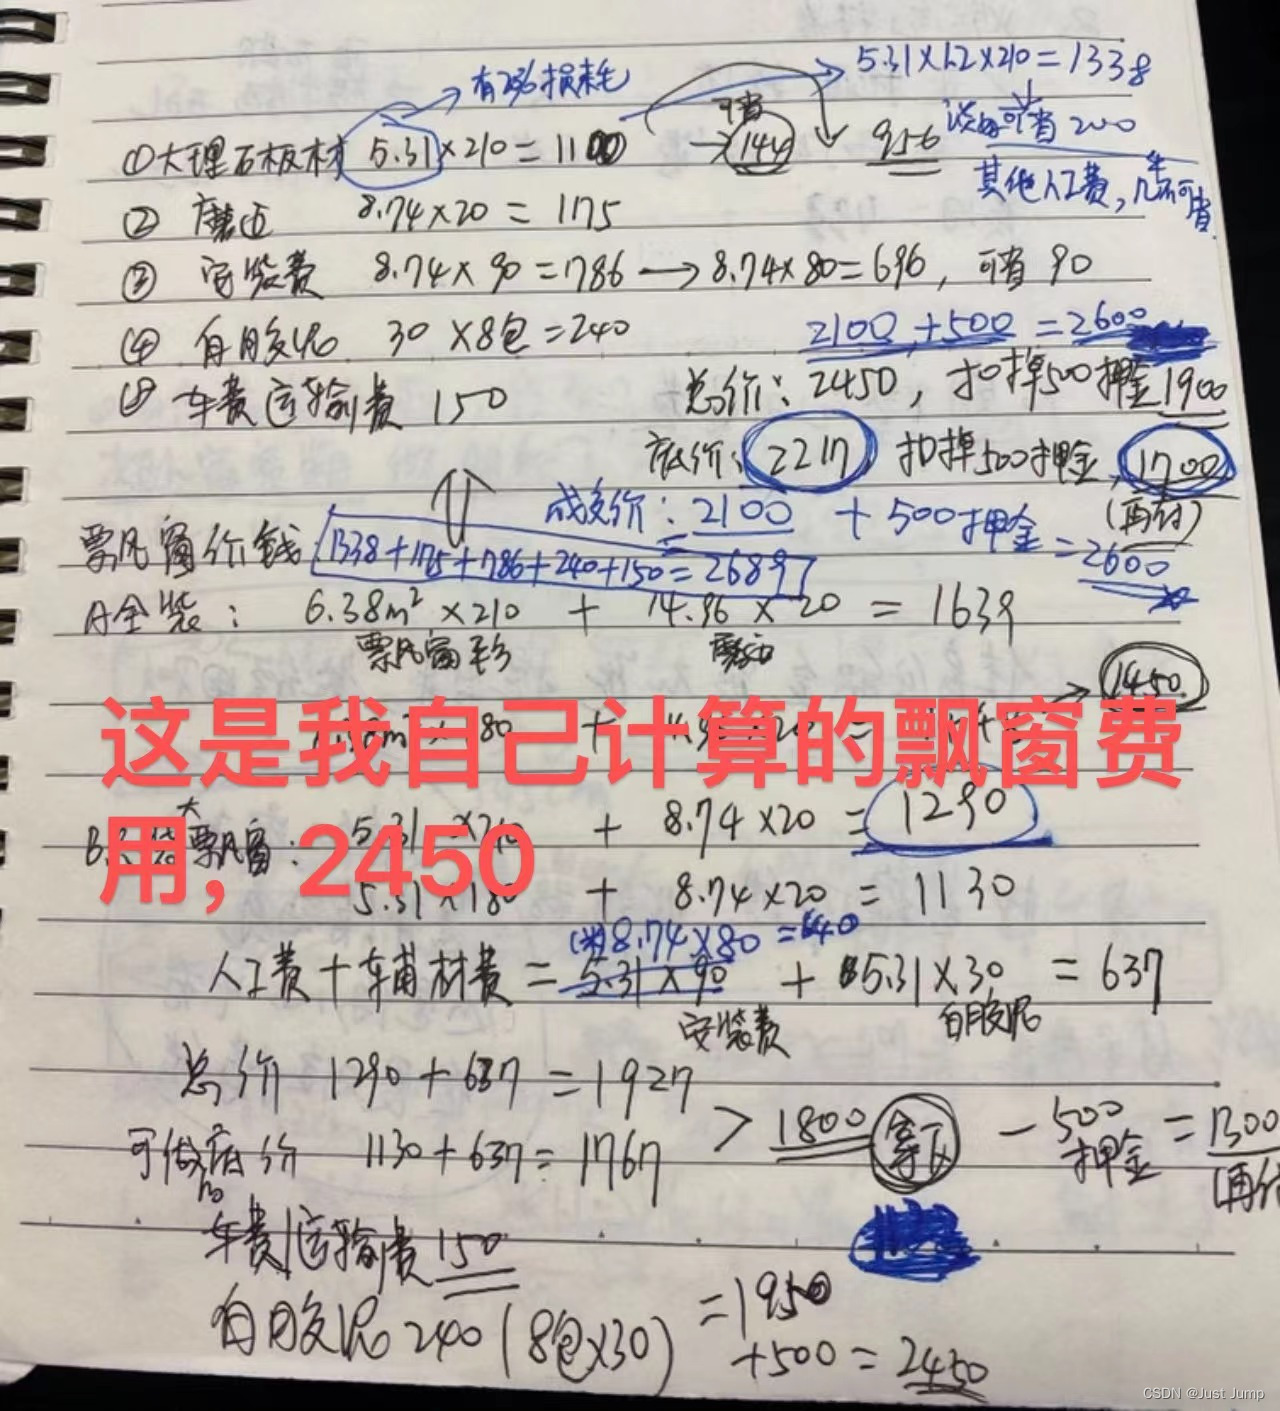 5.31×1.2×210=1338
有2%损耗
可省
谈好可省 200
①大理石板材 5.31×210=1100 → 144 956
其他人工费,几乎不可省
② 磨边 8.74×20 = 175
③ 安装费 8.74×90=786 → 8.74×80=696, 可省 90
④ 白胶泥 30 ×8包=240
2100+500 =2600
⑤ 车费运输费 150
总价: 2450, 扣掉500押金 1900
底价: 2217 扣掉500押金, 1700
(再付)
成交价: 2100 + 500押金
=2600
飘风窗价钱
1338+175+786+240+150=2689
A全装: 6.38m² ×210 + 14.96 × 20 = 1639
飘风窗
1450
这是我自己计算的飘窗费
用，2450
大飘风窗: 5.31×210 + 8.74×20 = 1290
5.31×180 + 8.74×20 = 1130
8.74×80 =640
人工费+车辅材费= 5.31×90 + 5.31×30 = 637
安装费 白胶泥
总价 1290+637=1927
> 1800 拿下 - 500押金 =1300
可做底价 1130+637=1767
车费/运输费 150
白胶泥 240 (8包×30)
=1950
+500=2450
CSDN @Just Jump